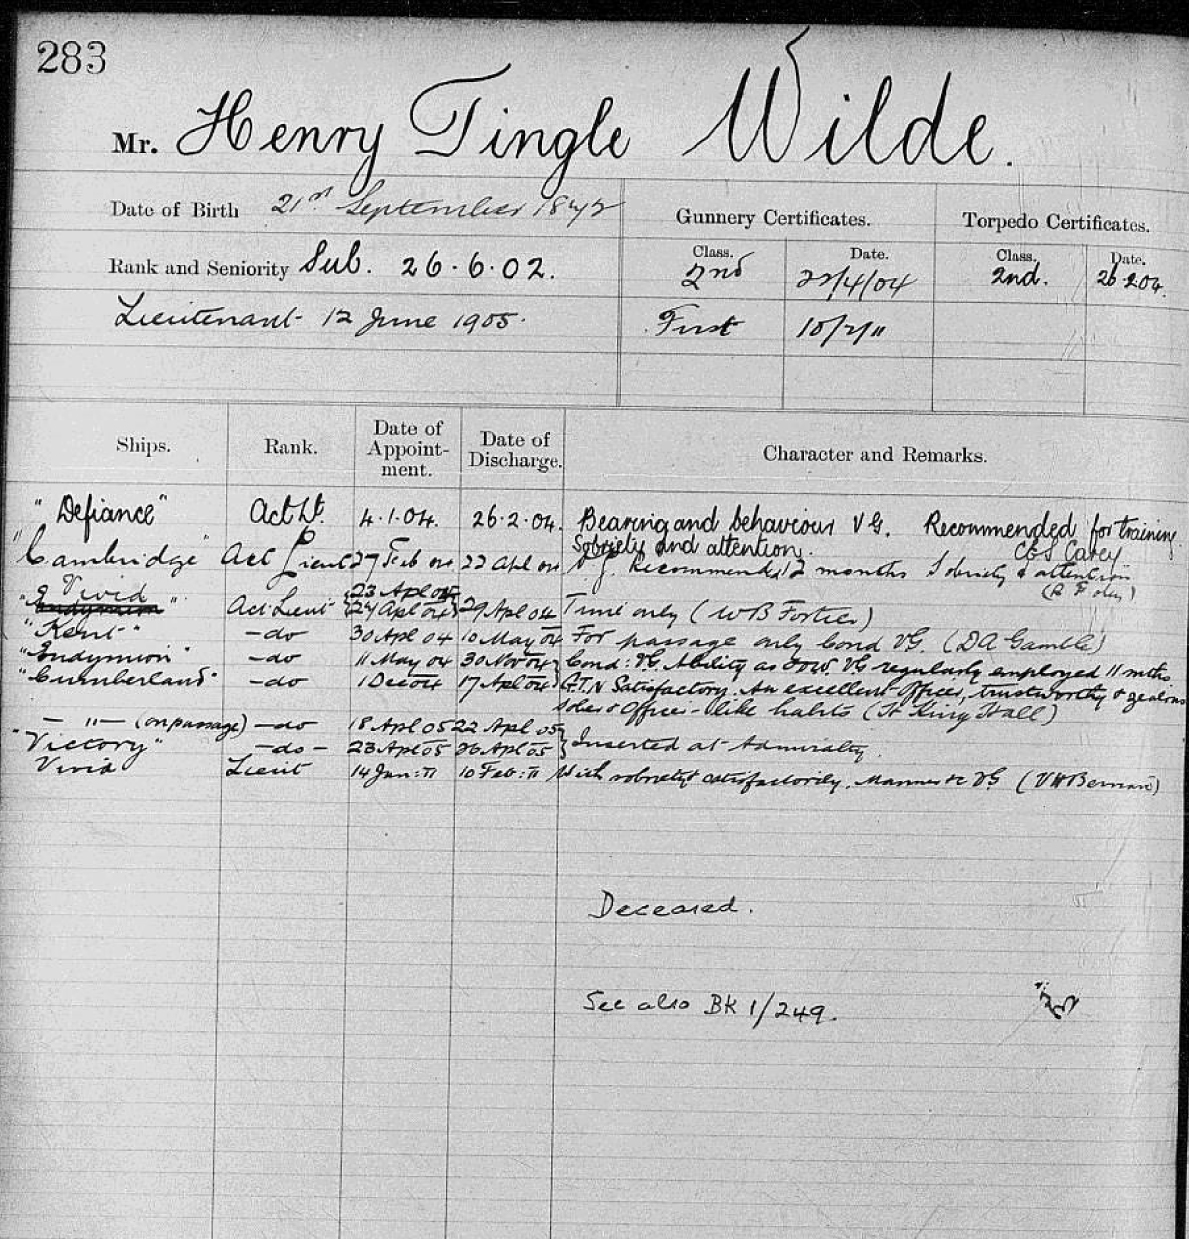 283
Mr. Henry Tingle Wilde.
Date of Birth 21st September 1872
Gunnery Certificates.
Torpedo Certificates.
Class. Date. Class. Date.
Rank and Seniority Sub. 26.6.02. 2nd 22/4/04 2nd. 26.2.04.
Lieutenant 12 June 1905. First 10/2/11
Ships. Rank. Date of Appoint-ment. Date of Discharge. Character and Remarks.
"Defiance" Act Lt. 4.1.04. 26.2.04. Bearing and behaviour V G. Recommended for training.
Sobriety and attention. Carey
"Cambridge" Act Lieut 27 Feb 04 22 Apl 04 V.G. Recommended 12 months Sobriety & attention
Vivid 23 Apl 04
"Endymion" Act Lieut 24 Apl 04 29 Apl 04 Time only (W B Forties)
"Kent" - do 30 Apl 04 10 May 04 For passage only Cond VG. (DA Gamble)
"Endymion" - do 11 May 04 30 Nov 04 Cond: VG. Ability as VG regularly employed 11 mths.
"Cumberland" - do 1 Dec 04 17 Apl 05 G.T.N Satisfactory. An excellent officer, trustworthy & zealous
Officer-like habits (King Hall)
— " — (on passage) - do 18 Apl 05 22 Apl 05
"Victory" - do - 23 Apl 05 26 Apl 05 Inserted at Admiralty.
Vivid Lieut 14 Jan: 11 10 Feb: 11 With sobriety & satisfactorily. Manner &c VG
Deceased.
See also BK 1/249.